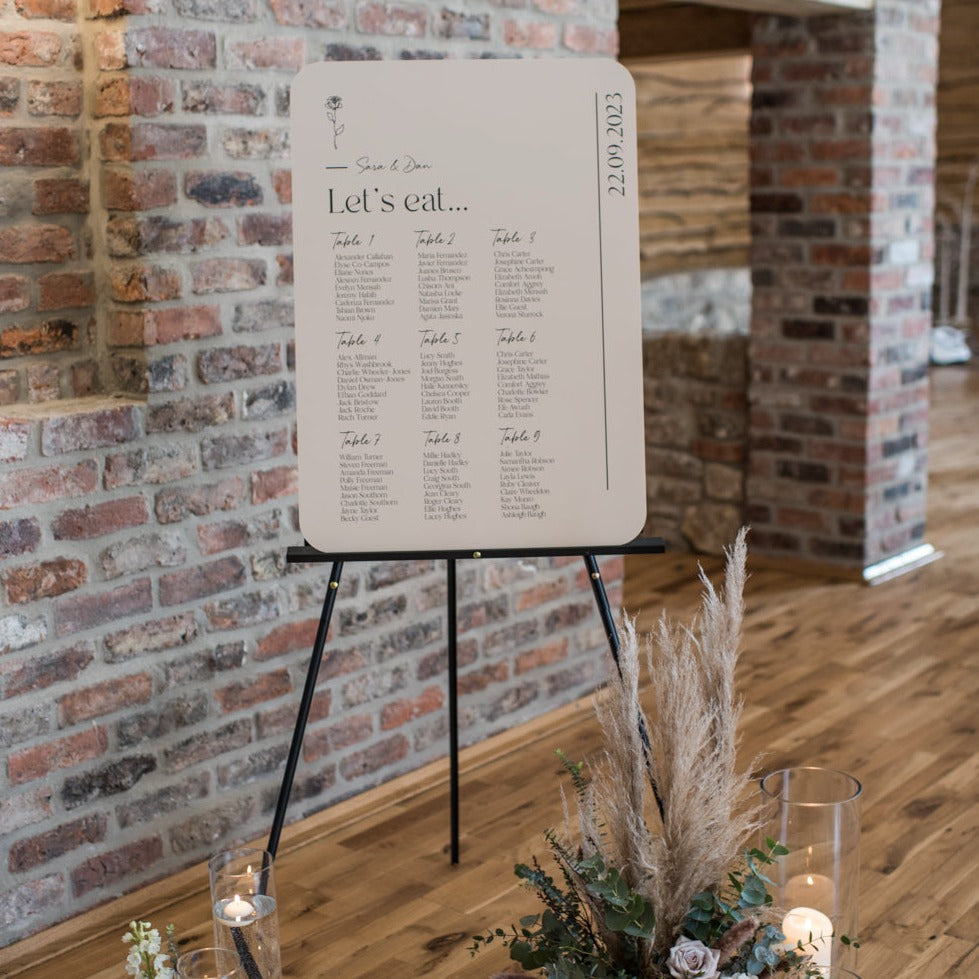 22.09.2023
Sara & Dan
Let's eat...
Table 1
Alexander Callahan
Elyse Co-Campos
Eliane Nunes
Fernandez
Evelyn Mensah
Jeremy Halab
Cadenza Fernandez
Tobian Brown
Naomi Njoku
Table 2
Maria Fernandez
Javier Fernandez
Juanes Brosen
Leisha Thompson
Chisom Ani
Natasha Locke
Marissa Grant
Damien Mary
Agata Jasioska
Table 3
Chris Carter
Josephine Carter
Grace Acheampong
Elizabeth Arnoh
Comfort Aggrey
Elizabeth Mensah
Rosinna Davies
Ellie Guest
Verona Sturrock
Table 4
Alex Allman
Rhys Washbrook
Charlie Wheeler-Jones
Daniel Osman-Jones
Dylan Drew
Ethan Goddard
Jack Bristow
Jack Roche
Ruch Turner
Table 5
Lucy Smith
Jenny Hughes
Joel Burgess
Morgan Smith
Hale Kinnersley
Chelsea Cooper
Lauren Booth
David Booth
Eddie Ryan
Table 6
Chris Carter
Josephine Carter
Grace Taylor
Elizabeth Mathias
Comfort Aggrey
Charlotte Bowker
Rose Spencer
Efe Awuah
Carla Evans
Table 7
William Turner
Steven Freeman
Amanda Freeman
Polly Freeman
Maisie Freeman
Jason Southorn
Charlotte Southorn
Jayne Taylor
Becky Guest
Table 8
Millie Hadley
Danielle Hadley
Lucy South
Craig South
Georgina South
Jean Cleary
Roger Cleary
Ellie Hughes
Lacey Hughes
Table 9
Julie Taylor
Samantha Robson
Aimee Robson
Layla Lewis
Ruby Cleaver
Claire Wheeldon
Kay Munro
Shona Baugh
Ashleigh Baugh